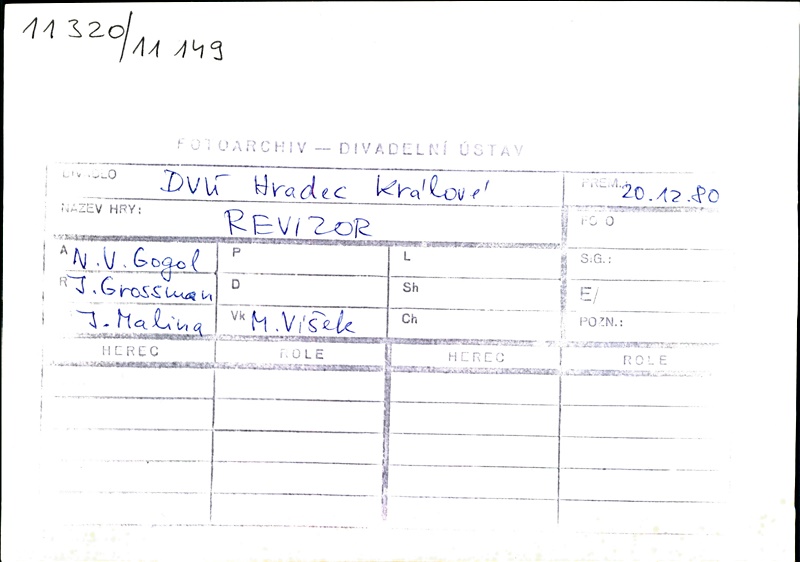 11 320/11 149
FOTOARCHIV — DIVADELNÍ ÚSTAV
DIVADLO DVÚ Hradec Králové PREM.: 20.12.80
NÁZEV HRY: REVIZOR FOTO
A N.V. Gogol P L SIG.:
R J. Grossman D Sh E/
J. Malina Vk M. Víšek Ch POZN.:
HEREC ROLE HEREC ROLE